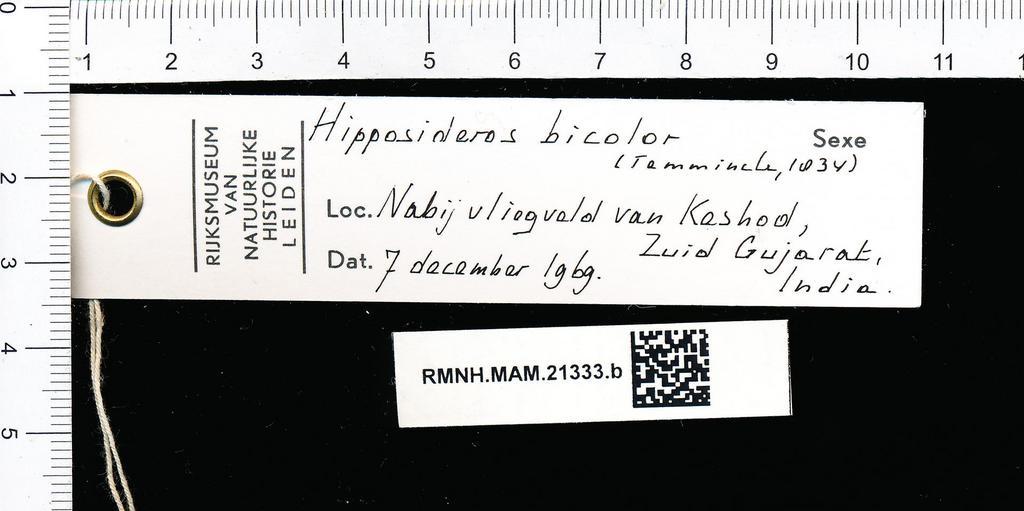 0 1 2 3 4 5 6 7 8 9 10 11
1
2
3
4
5
RIJKSMUSEUM
VAN
NATUURLIJKE
HISTORIE
LEIDEN
Hipposideros bicolor
Sexe
(Temminck, 1834)
Loc. Nabij vliegveld van Keshod,
Zuid Gujarat,
Dat. 7 december 1969.
India.
RMNH.MAM.21333.b